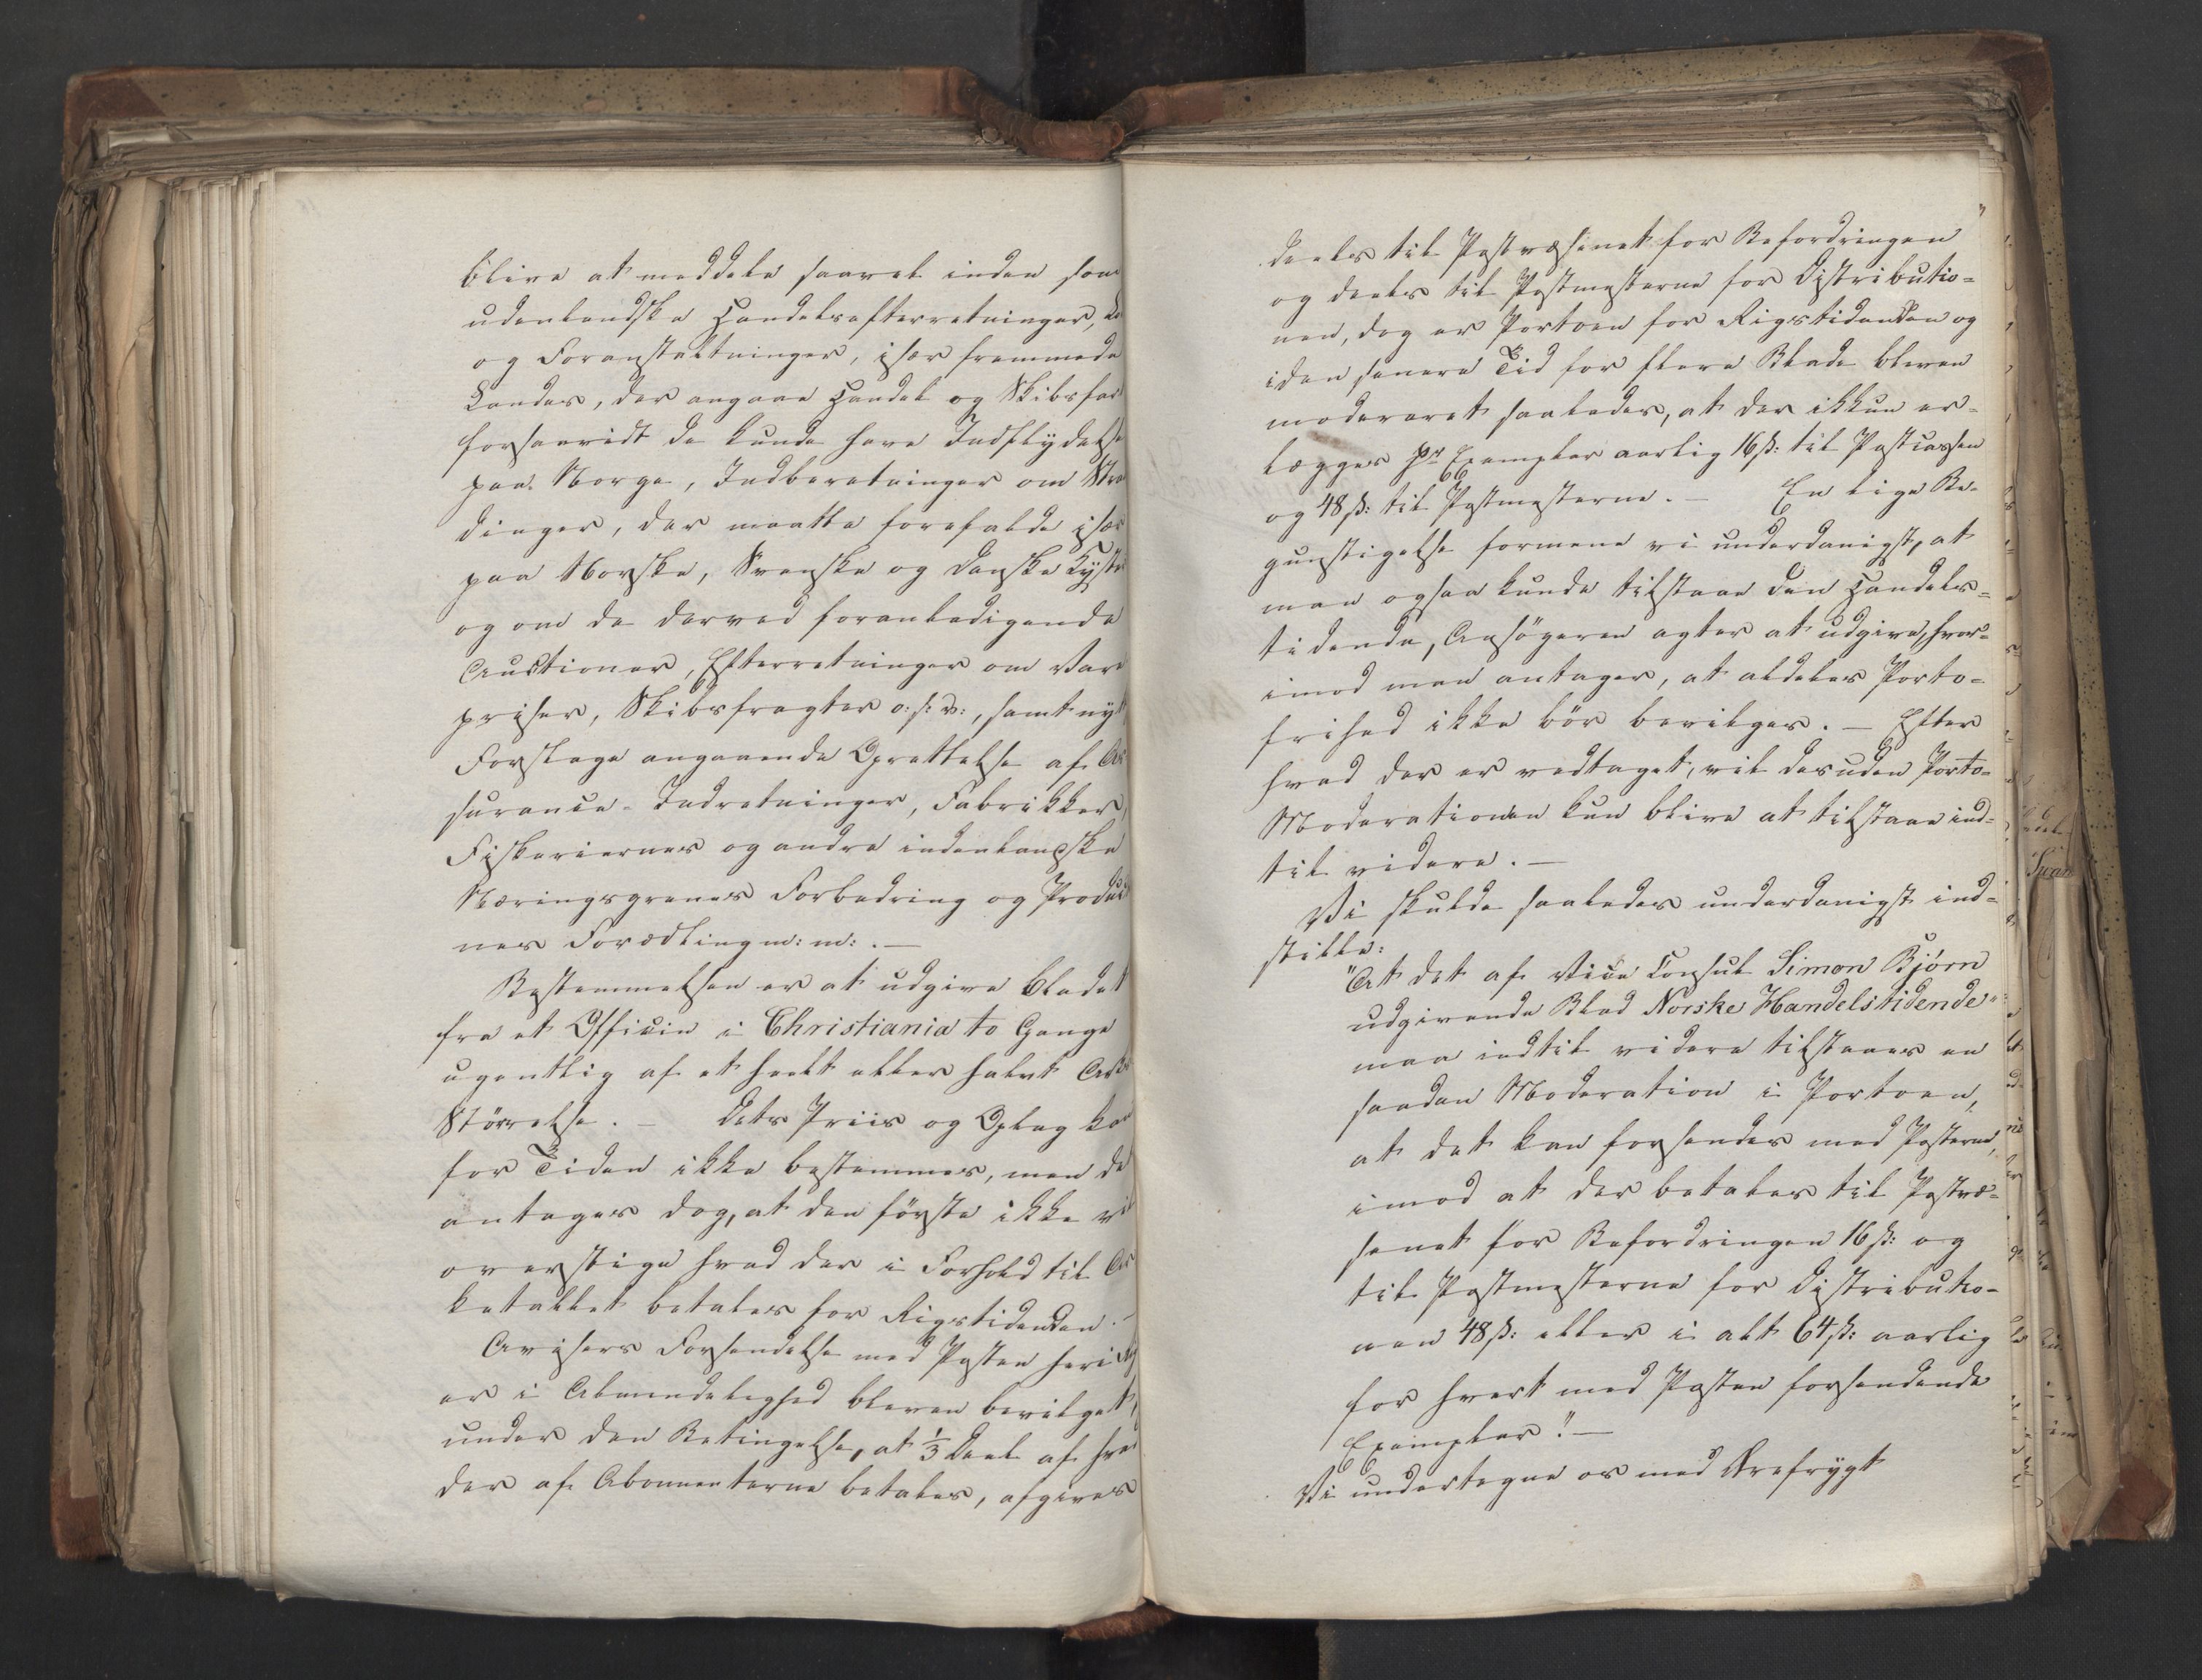 blive at meddele saavel inden som
udenlandske Handelsefterretninger, Lo
og Foranstaltninger, især fremmede
Landes, der angaae Handel og Skibsfart
forsaavidt de kunde have Indflydelse
paa Norge, Indberetninger om Stran
dinger, der maatte forefalde især
paa Norske, Svenske og Danske Kyster
og om de derved foranledigende
Auctioner, Efterretninger om Vare
priser, Skibsfragter o: s: v:, samt nytt
Forslage angaaende Oprettelse af As
surance-Indretninger, Fabrikker,
Fiskeriernes og andre indenlandske
Næringsgrenes Forbedring og Produc
ners Forædling m: m: . —
Bestemmelsen er at udgive Bladet
fra et Officin i Christiania to Gange
ugentlig af et heelt eller halvt Arks
Størrelse. — Dets Priis og Oplag kan
for Tiden ikke bestemmes, men det
antages dog, at den første ikke vil
overstige hvad der i Forhold til Ar
ketallet betales for Rigstidenden. —
Avisers Forsendelse med Posten heri Rig
er i Almindelighed bleven bevilget,
under den Betingelse, at 1/3 Deel af hvad
der af Abonnenterne betales, afgives
deels til Postvæsenet for Befordringen
og deels til Postmesterne for Distributio=
nen, dog er Portoen for Rigstidenden og
i den senere Tid for flere Blade bleven
modereret saaledes, at der ikkun er=
lægges pr Exemplar aarlig 16 ß: til Postcassen
og 48 ß: til Postmesterne. — En lige Be=
gunstigelse formene vi underdanigst, at
man ogsaa kunde tilstaae den Handels=
tidende, Ansøgeren agter at udgive, hvor=
imod man antager, at aldeles Porto=
frihed ikke bør bevilges. — Efter
hvad der er vedtaget, vil desuden Porto=
Moderationen kun blive at tilstaae ind=
til videre. —
Vi skulde saaledes underdanigst ind=
stille:
"At det af Vice Consul Simon Bjørn
udgivende Blad Norske Handelstidende"
maa indtil videre tilstaaes en
saadan Moderation i Portoen,
at det kan forsendes med Posterne,
imod at der betales til Postvæ=
senet for Befordringen 16 ß: og
til Postmesterne for Distributio=
nen 48 ß: eller i alt 64 ß: aarlig
for hvert med Posten forsendende
Exemplar". —
Vi undertegne os med Ærefrygt